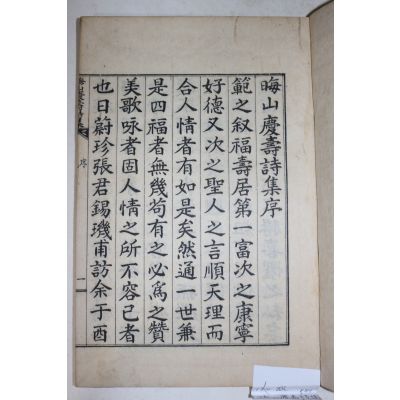 晦山慶壽詩集序
範之叙福壽居第一富次之康寧
好德又次之聖人之言順天理而
合人情者有如是矣然通一世兼
是四福者無幾苟有之必爲之贊
美歌咏者固人情之所不容已者
也日蔚珍張君錫璣甫訪余于酉
序
一